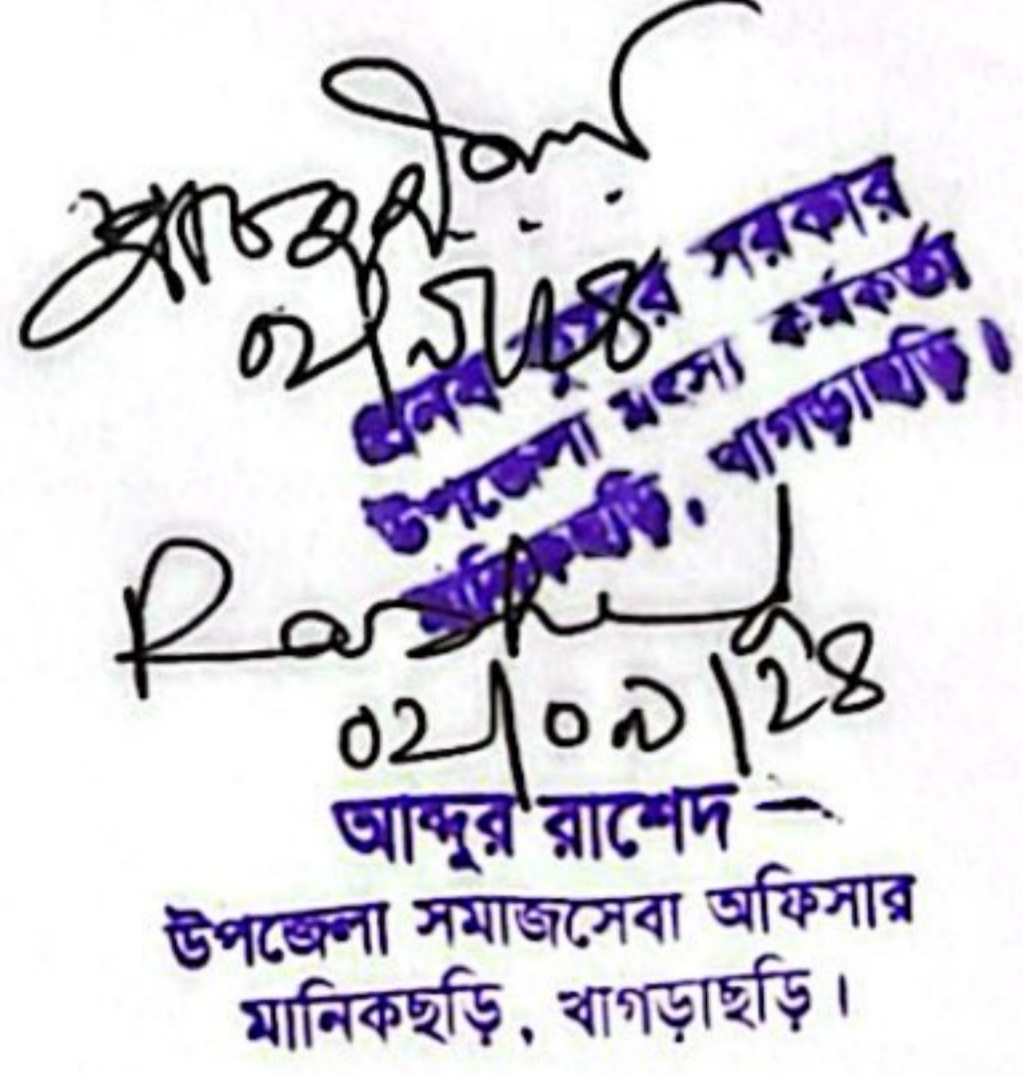 ০২/৯/২৪
প্রনব কুমার সরকার
উপজেলা মৎস্য কর্মকর্তা
মানিকছড়ি, খাগড়াছড়ি।
Rashed
০২/০৯/২৪
আব্দুর রাশেদ
উপজেলা সমাজসেবা অফিসার
মানিকছড়ি, খাগড়াছড়ি।